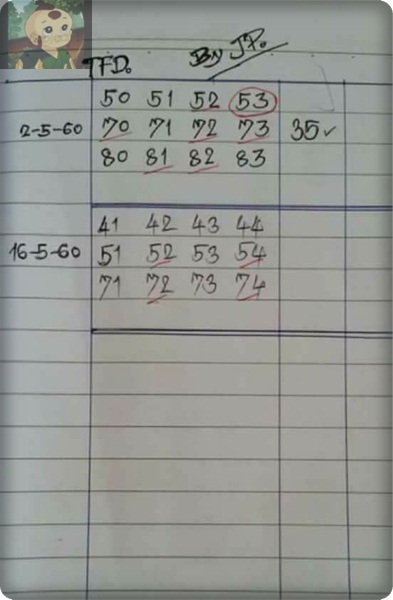 TFD. By JP.
50 51 52 53
2-5-60 70 71 72 73 35✓
80 81 82 83
41 42 43 44
16-5-60 51 52 53 54
71 72 73 74